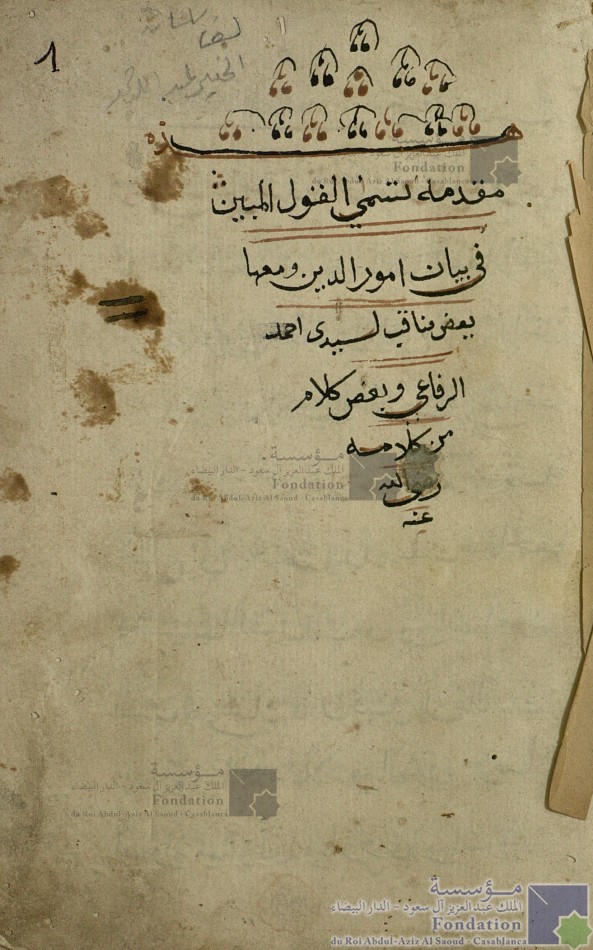 1
هذه
مقدمه تسمي القول المبين
في بيان امور الدين ومعها
بعض مناقب لسيدى احمد
الرفاعي وبعض كلام
من كلامه
رضي الله
عنه
مؤسسة
الملك عبد العزيز آل سعود - الدار البيضاء
Fondation
du Roi Abdul-Aziz Al Saoud - Casablanca
مؤسسة
الملك عبد العزيز آل سعود - الدار البيضاء
Fondation
du Roi Abdul-Aziz Al Saoud - Casablanca
مؤسسة
الملك عبد العزيز آل سعود - الدار البيضاء
Fondation
du Roi Abdul-Aziz Al Saoud - Casablanca
مؤسسة
الملك عبد العزيز آل سعود - الدار البيضاء
Fondation
du Roi Abdul-Aziz Al Saoud - Casablanca